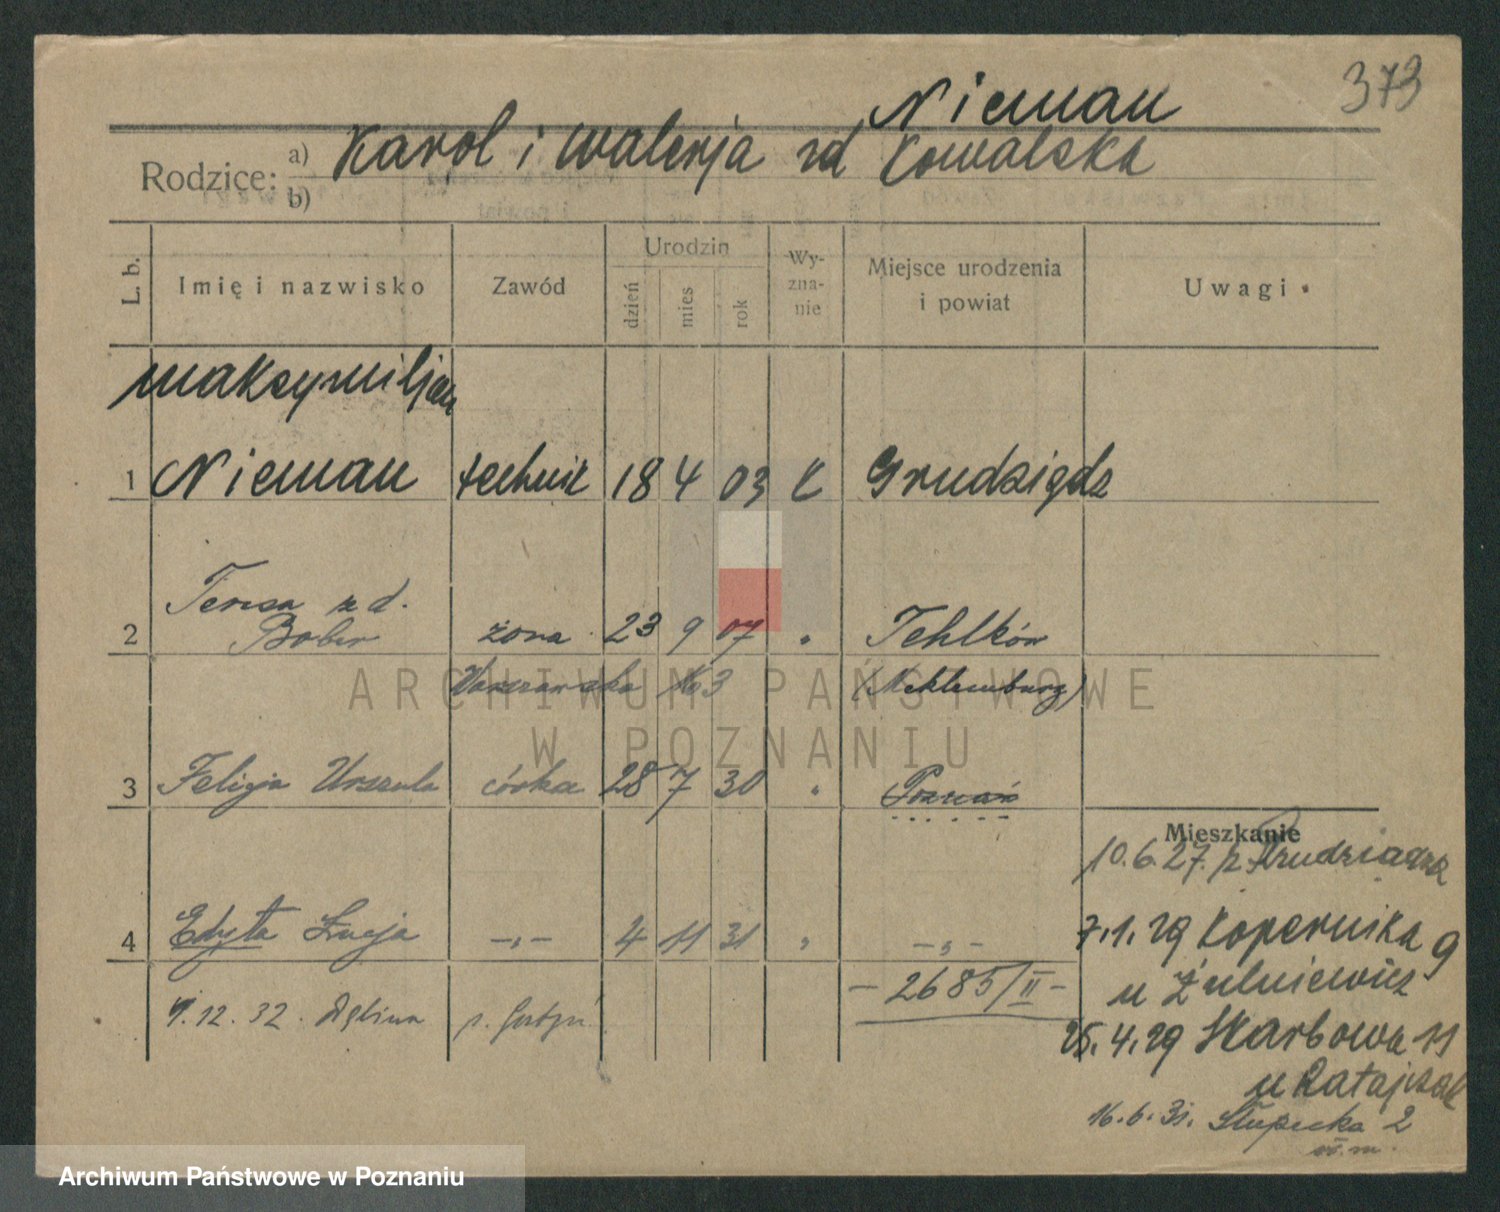 373
Nieman
Rodzice: a) b) Karol i Walerja zd Kowalska
L. b. Imię i nazwisko Zawód Urodzin dzień mies rok Wy-zna-nie Miejsce urodzenia i powiat Uwagi
Maksymiljan
1 Nieman technik 18 4 03 k Grudziądz
Teresa zd.
2 Bober żona 23 9 07 " Tehlków
Warszawska 163 (Meklemburg)
3 Felicja Urszula córka 28 7 30 " Poznań
Mieszkanie
10.6.27. z Grudziądza
4 Edyta Łucja -"- 4 11 31 " -"-
7.1.29 Kopernika 9
- 2685/II -
u Żulniewicz
9.12.32. Dęblina p.
25.4.29 Skarbowa 11
u Ratajczak
16.6.31. Słupecka 2
w.m.
ARCHIWUM PAŃSTWOWE
W POZNANIU
Archiwum Państwowe w Poznaniu